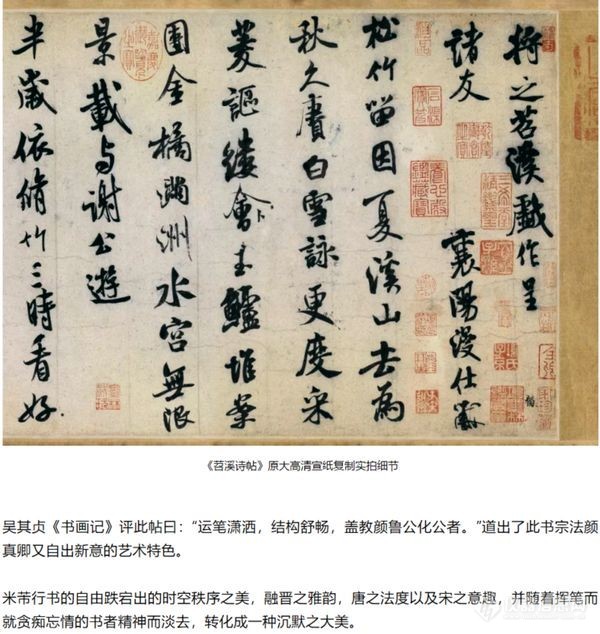 将之苕溪戲作呈
諸友 襄陽漫仕黻
松竹留因夏溪山去為
秋久賡白雪詠更度采
菱謳縷會卜玉鱸堆案
團金橘滿洲水宮無限
景載与謝公遊
半歲依脩竹三時看好
《苕溪诗帖》原大高清宣纸复制实拍细节
吴其贞《书画记》评此帖曰：“运笔潇洒，结构舒畅，盖教颜鲁公化公者。”道出了此书宗法颜
真卿又自出新意的艺术特色。
米芾行书的自由跌宕出的时空秩序之美，融晋之雅韵，唐之法度以及宋之意趣，并随着挥笔而
就贪痴忘情的书者精神而淡去，转化成一种沉默之大美。